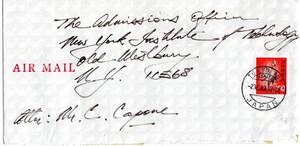 The Admissions Office
New York Institute of Technology
Old Westbury
N.Y. 11568
AIR MAIL
JAPAN
Attn: Mr. E. Capone